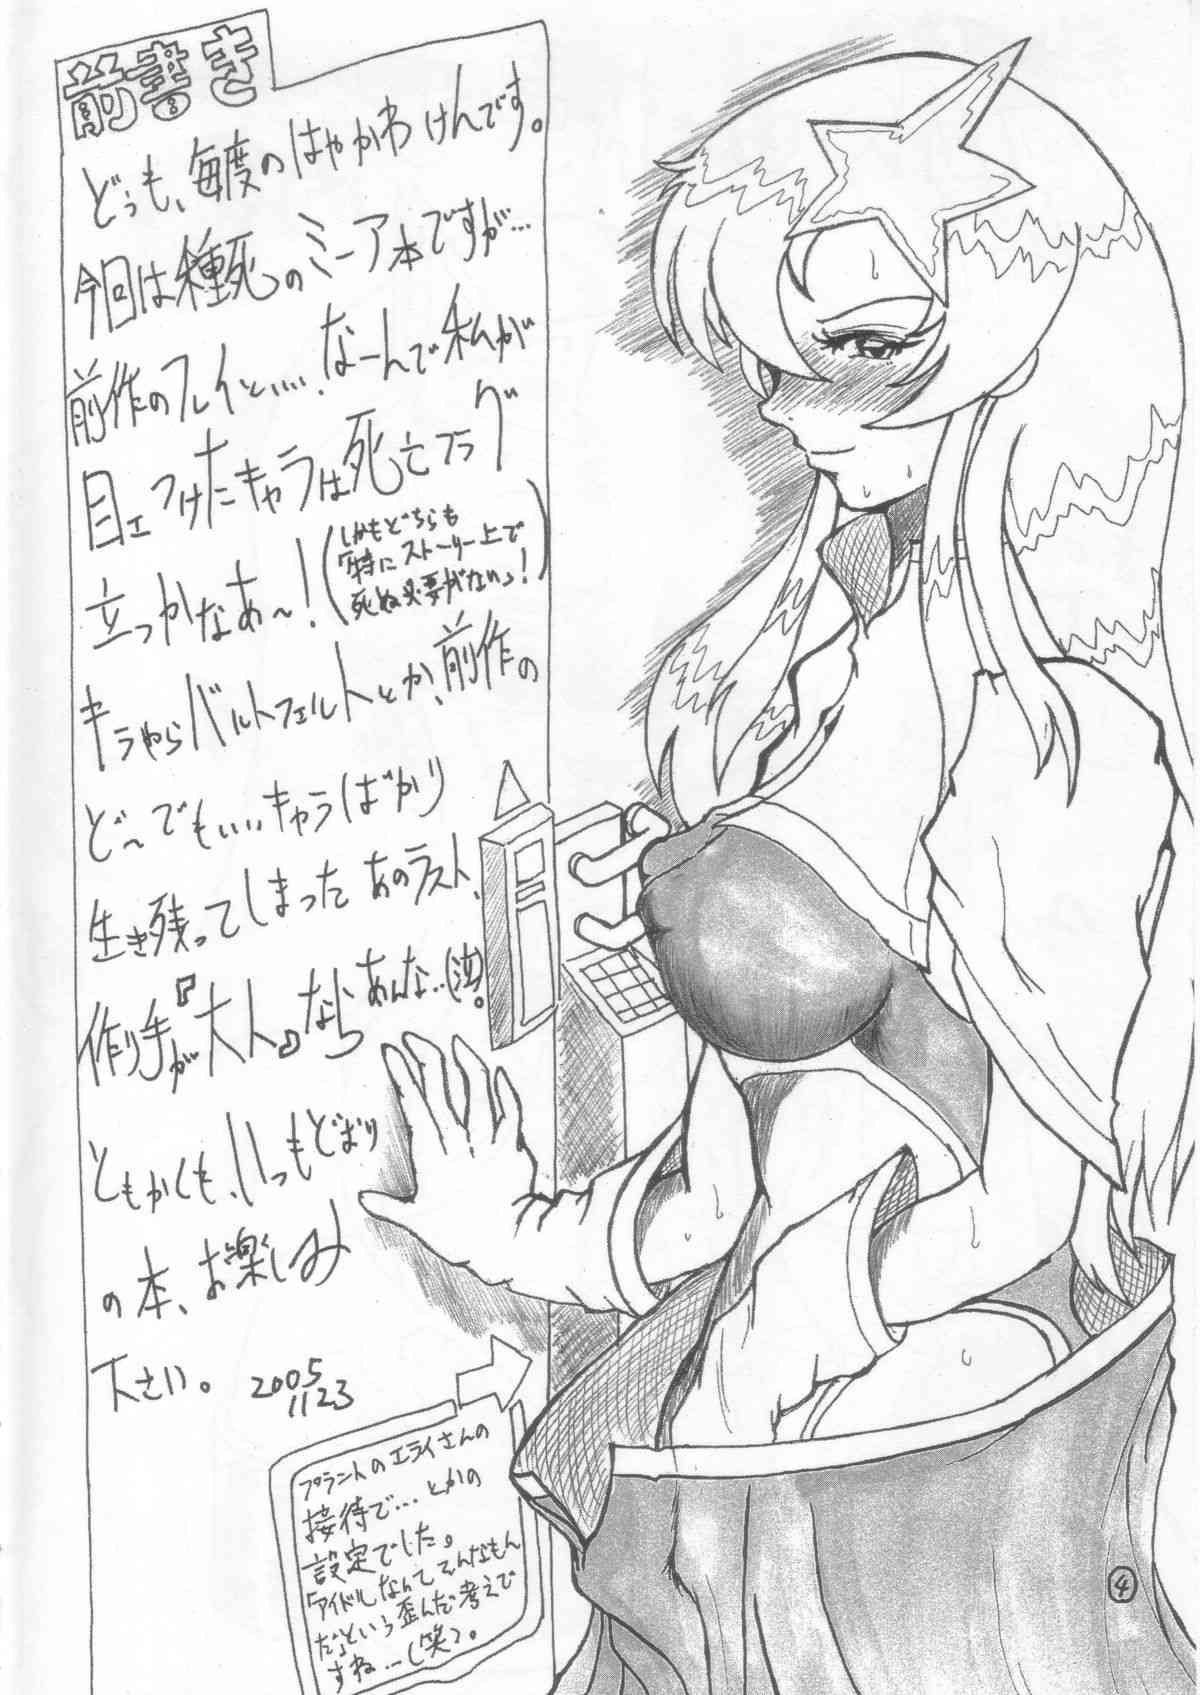 前書き
どぅも、毎度のはやかわけんです。
今回は種死のミーア本ですが…
前作のフレイといい、なーんで私が
目エつけたキャラは死亡フラグ
立つかなあ〜!
(しかもどちらも
特にストーリー上で
死ぬ必要がないっ!)
キラやらバルトフェルトとか、前作の
ど〜でもいいキャラばかり
生き残ってしまったあのラスト、
作り手が『大人』ならあんな‥(泣)。
ともかくも、いつもどおり
の本、お楽しみ
下さい。 2005
1123
プラントのエライさんの
接待で…とかの
設定でした。
「アイドルなんてそんなもん
だ」という歪んだ考えで
すね…(笑)。
4